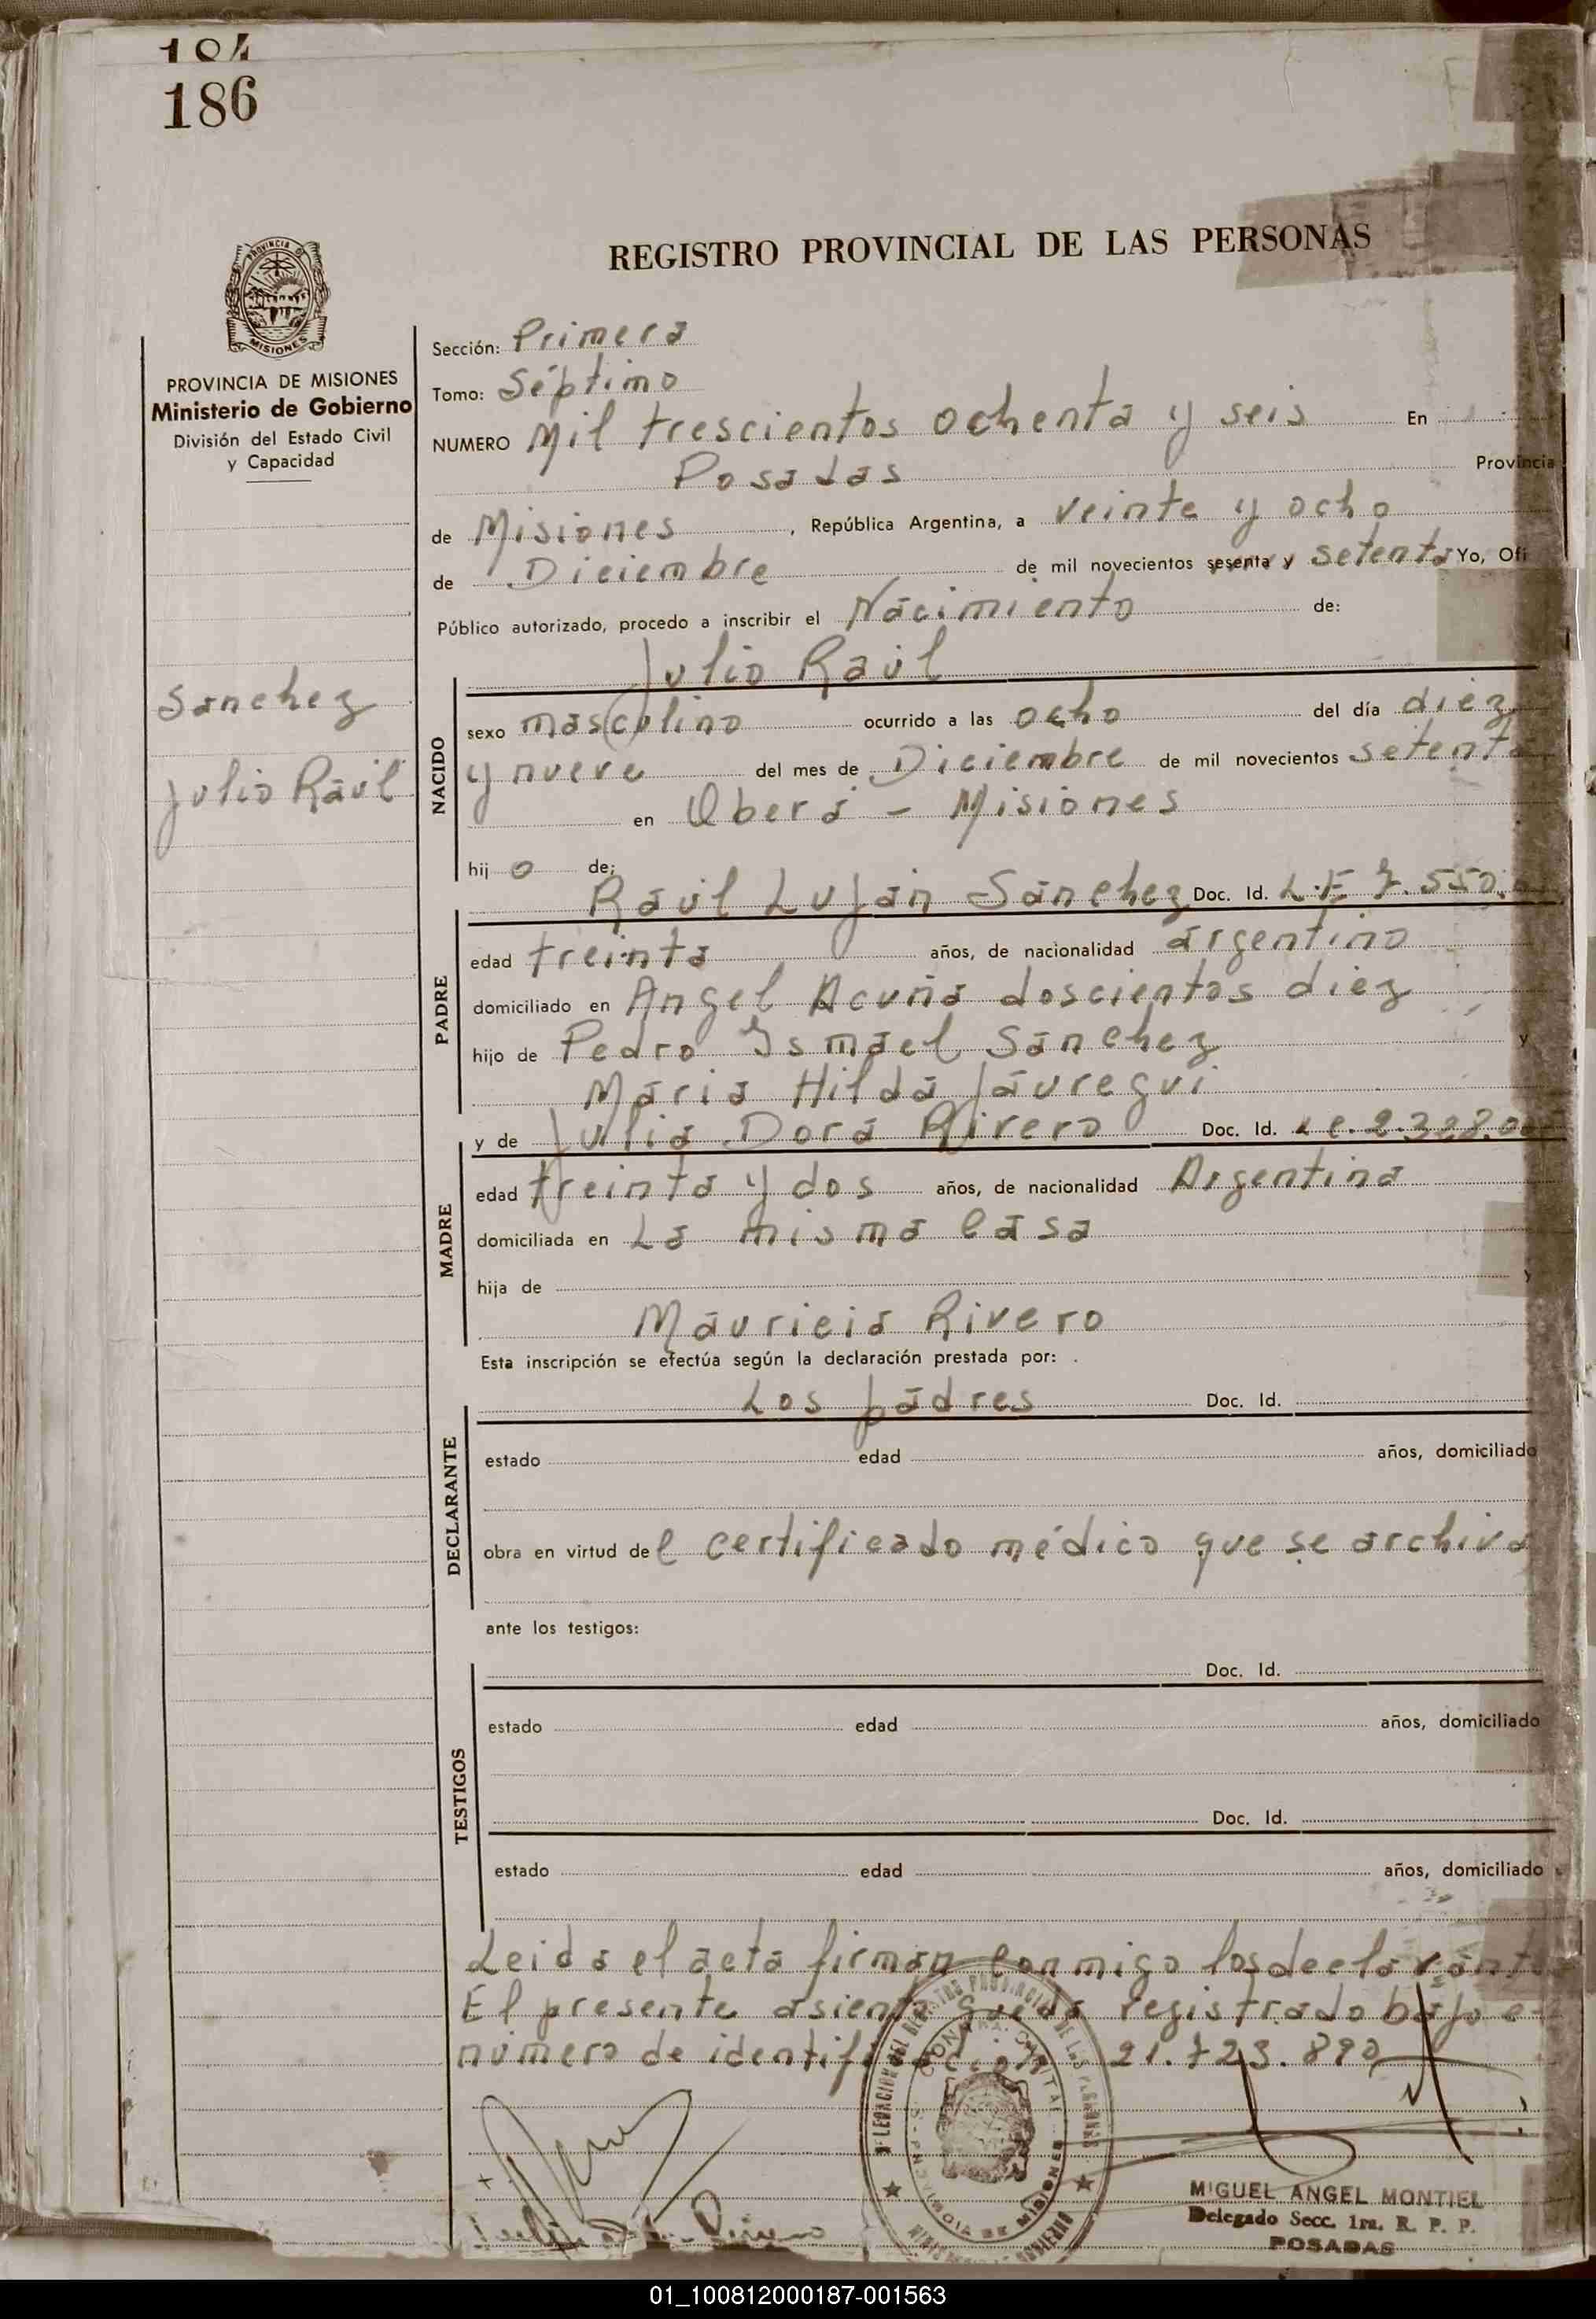 184
186
REGISTRO PROVINCIAL DE LAS PERSONAS
PROVINCIA DE MISIONES
Ministerio de Gobierno
División del Estado Civil
y Capacidad
Sanchez
Julio Raúl
Sección: Primera
Tomo: Séptimo
NUMERO Mil trescientos ochenta y seis En
Posadas Provincia
de Misiones, República Argentina, a veinte y ocho
de Diciembre de mil novecientos sesenta y setenta Yo, Ofi
Público autorizado, procedo a inscribir el Nacimiento de:
NACIDO
Julio Raúl
sexo masculino ocurrido a las ocho del día diez
y nueve del mes de Diciembre de mil novecientos setenta
en Oberá - Misiones
hijo de:
PADRE
Raúl Luján Sánchez Doc. Id. L.E 7.550.
edad treinta años, de nacionalidad argentino
domiciliado en Angel Acuña doscientos diez
hijo de Pedro Ismael Sánchez y
María Hilda Jáuregui
MADRE
y de Julia Dora Rivero Doc. Id. L.C. 2.328.0
edad treinta y dos años, de nacionalidad Argentina
domiciliada en La misma casa
hija de y
Mauricia Rivero
Esta inscripción se efectúa según la declaración prestada por:
DECLARANTE
Los padres Doc. Id.
estado edad años, domiciliado
obra en virtud del certificado médico que se archiva
ante los testigos:
TESTIGOS
Doc. Id.
estado edad años, domiciliado
Doc. Id.
estado edad años, domiciliado
Leida el acta firman conmigo los declarant
El presente asiento queda registrado bajo e
número de identificación 21.723.890
MIGUEL ANGEL MONTIEL
Delegado Secc. 1ra. R. P. P.
POSADAS
01_100812000187-001563